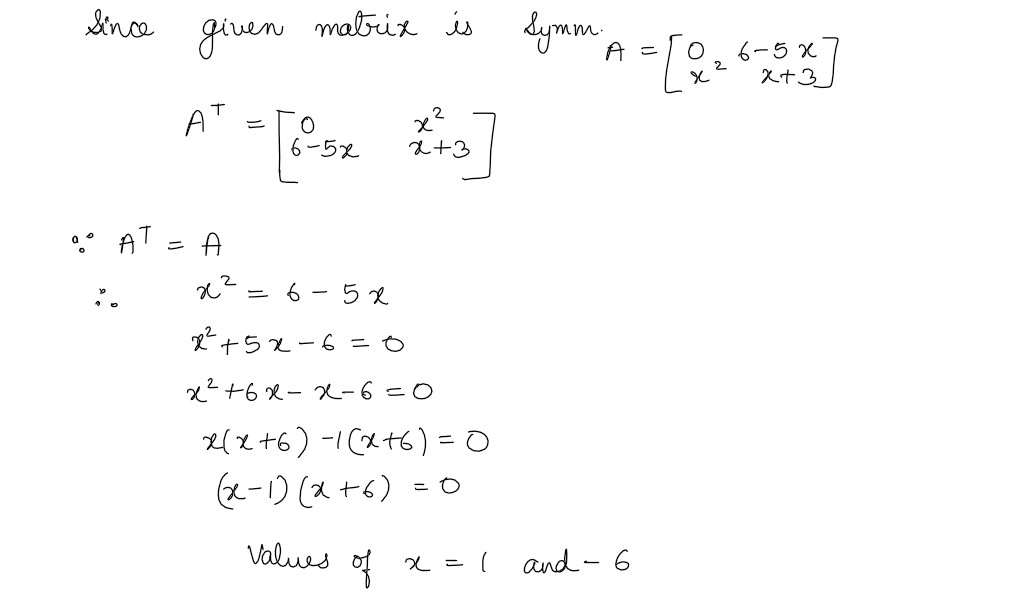 Since given matrix is Symm. A = [0 6-5x
x² x+3]
Aᵀ = [0 x²
6-5x x+3]
∵ Aᵀ = A
∴ x² = 6 - 5x
x² + 5x - 6 = 0
x² + 6x - x - 6 = 0
x(x+6) -1(x+6) = 0
(x-1)(x+6) = 0
Values of x = 1 and - 6